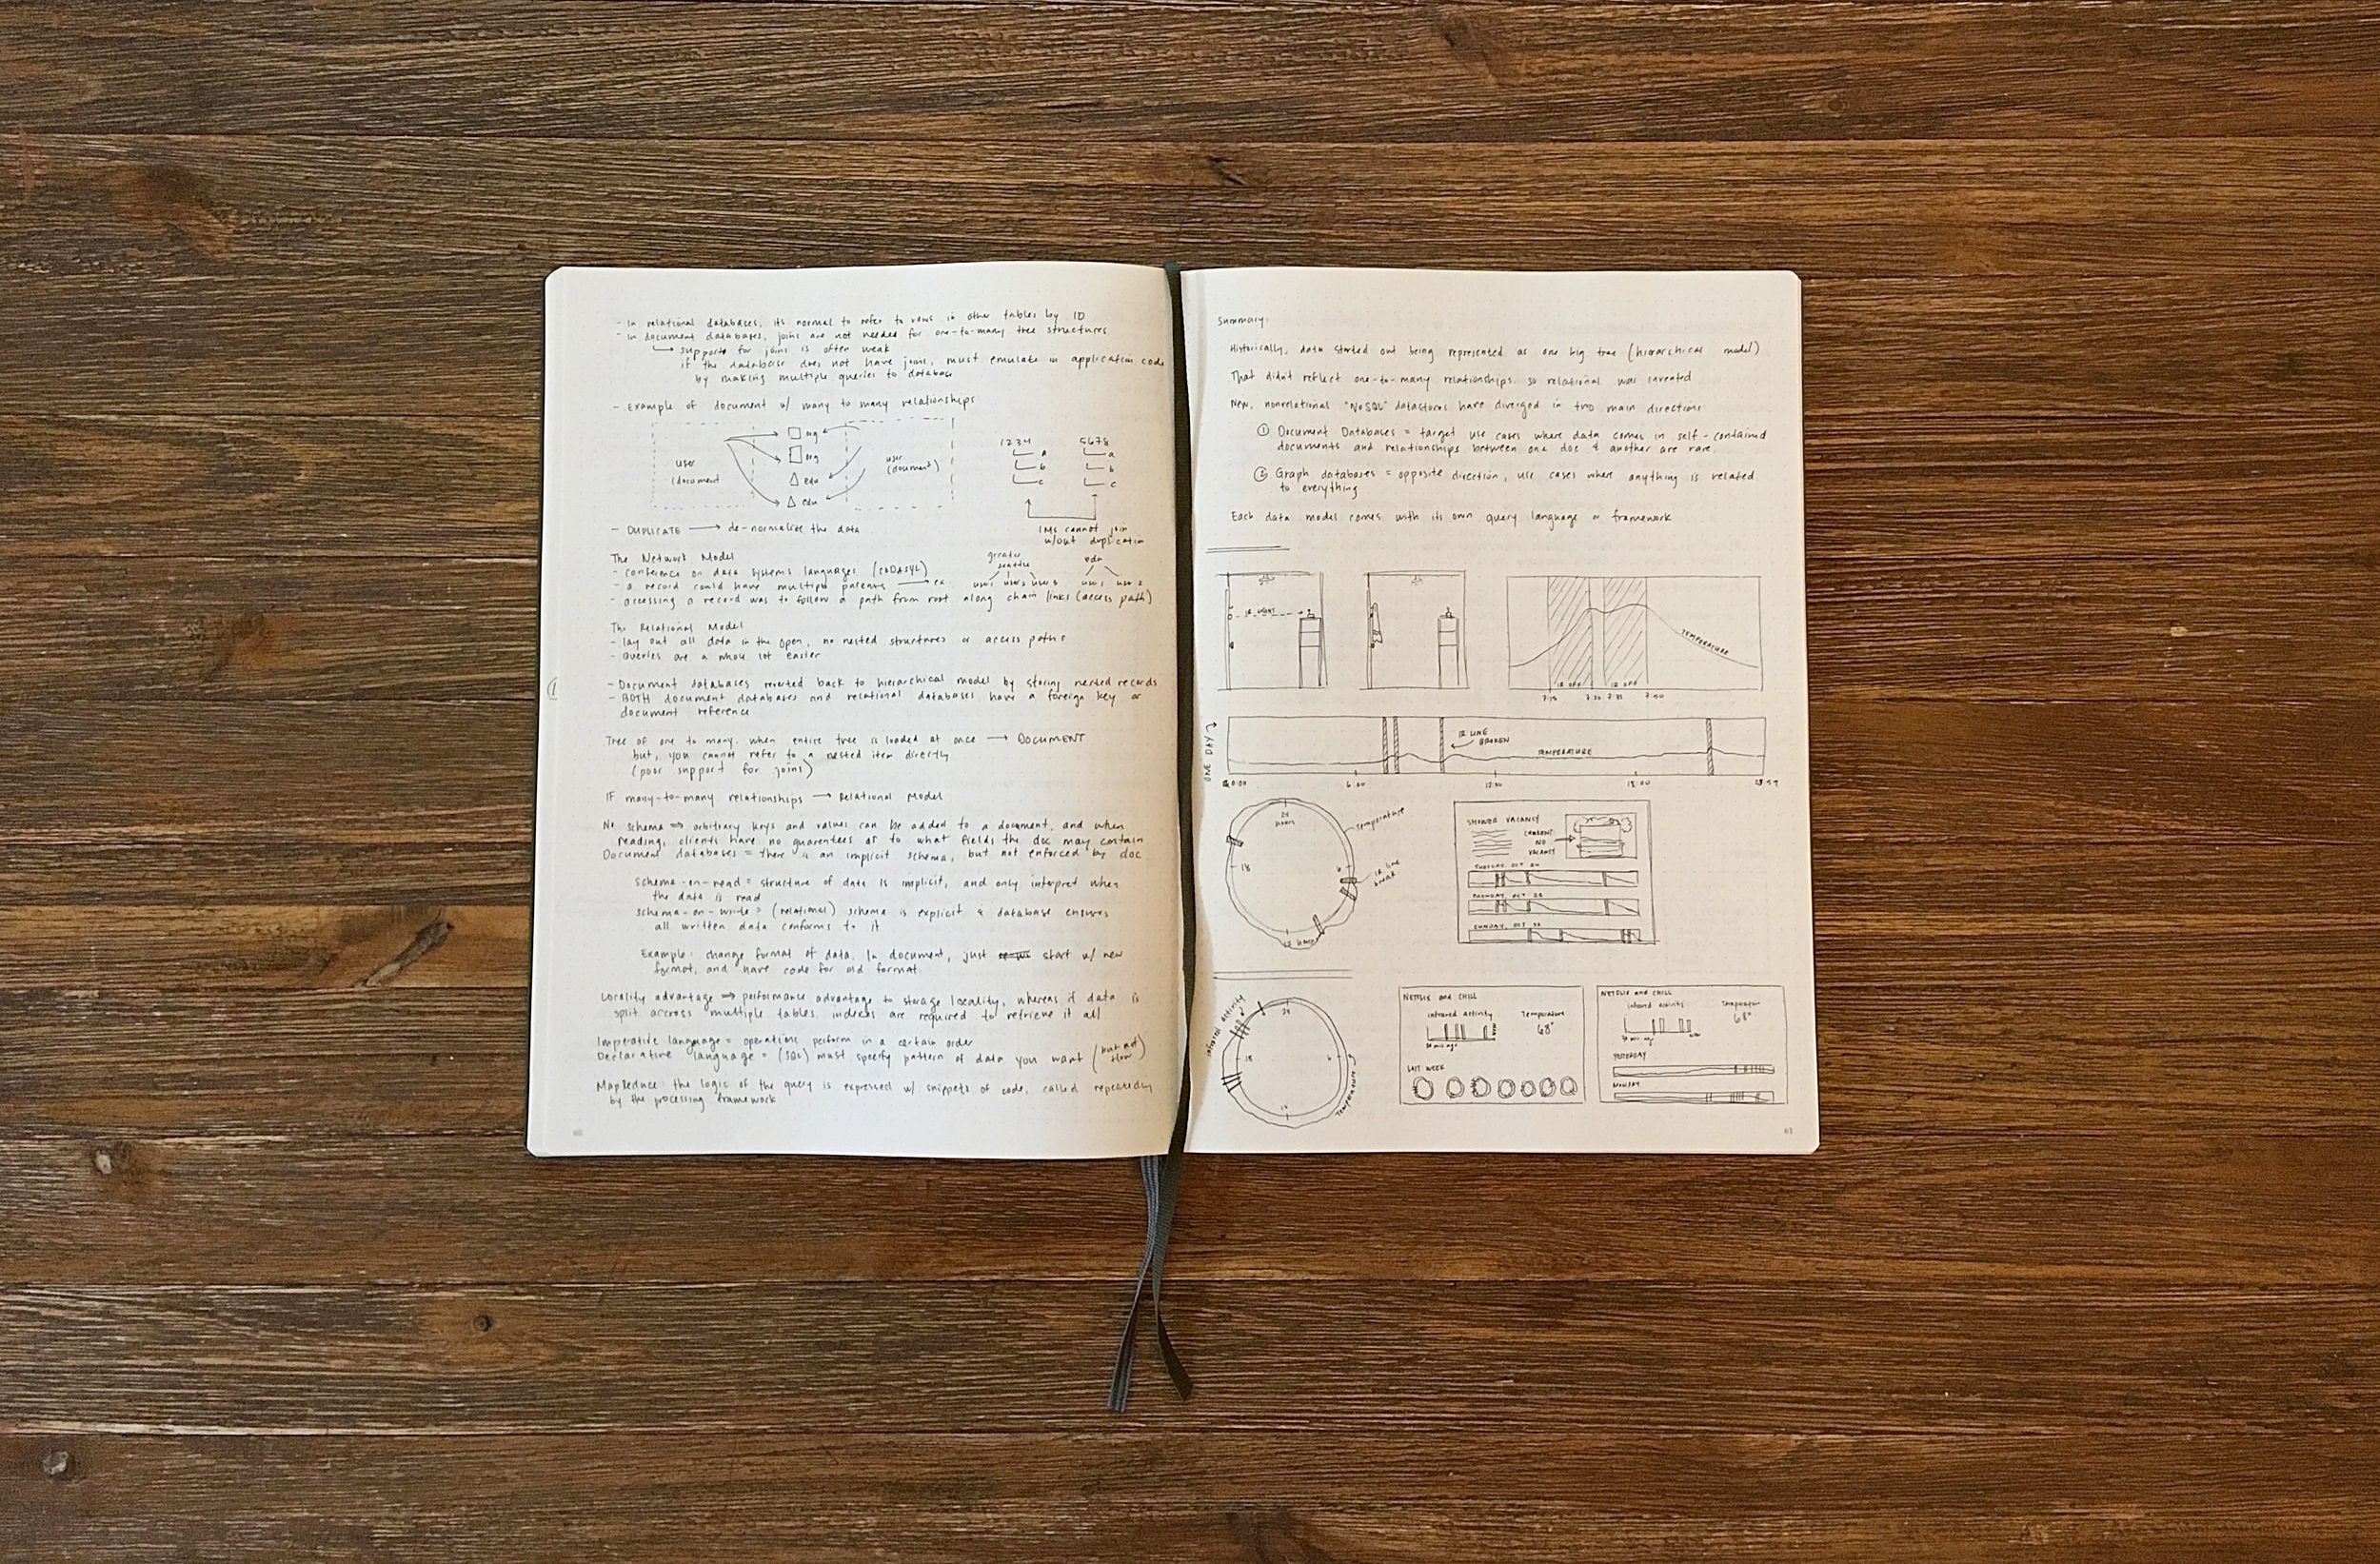 - In relational databases, its normal to refer to rows in other tables by ID
- In document databases, joins are not needed for one-to-many tree structures
support for joins is often weak
if the database does not have joins, must emulate in application code
by making multiple queries to database
- Example of document w/ many to many relationships
org
org
edu
edu
user
(document
user
(document)
1234
a
b
c
5678
a
b
c
IMS cannot join
w/out duplication
- DUPLICATE → de-normalize the data
The Network Model
- conference on data systems languages (CODASYL)
- a record could have multiple parents → ex.
- accessing a record was to follow a path from root along chain links (access path)
greater
seattle
user1 user2 user3
edu
user1 user2
The Relational Model
- lay out all data in the open, no nested structures or access paths
- Queries are a whole lot easier
- Document databases reverted back to hierarchical model by storing nested records
- BOTH document databases and relational databases have a foreign key or
document reference
Tree of one to many, when entire tree is loaded at once → DOCUMENT
but, you cannot refer to a nested item directly
(poor support for joins)
IF many-to-many relationships → Relational Model
No schema ⇒ arbitrary keys and values can be added to a document, and when
reading, clients have no guarentees as to what fields the doc may contain
Document databases = there is an implicit schema, but not enforced by doc
schema-on-read = structure of data is implicit, and only interpret when
the data is read
schema-on-write = (relational) schema is explicit & database ensures
all written data conforms to it
Example: change format of data. In document, just start w/ new
format, and have code for old format.
Locality advantage ⇒ performance advantage to storage locality, whereas if data is
split accross multiple tables, indexes are required to retrieve it all
Imperative language = operations perform in a certain order
Declarative language = (SQL) must specify pattern of data you want (but not how)
MapReduce: the logic of the query is expressed w/ snippets of code, called repeatedly
by the processing framework
60
Summary:
Historically, data started out being represented as one big tree (hierarchical model)
That didn't reflect one-to-many relationships, so relational was invented
New, nonrelational "NoSQL" datastores have diverged in two main directions:
① Document Databases = target use cases where data comes in self-contained
documents and relationships between one doc & another are rare.
② Graph databases = opposite direction, use cases where anything is related
to everything
Each data model comes with its own query language or framework
IR LIGHT
TEMPERATURE
IR OFF
IR OFF
7:15 7:20 7:35 7:50
ONE DAY
IR LINE
BROKEN
TEMPERATURE
0:00 6:00 12:00 18:00 23:59
24
hours
temperature
6
IR line
break
12 hours
18
SHOWER VACANCY
CURRENT
NO
VACANCY
TUESDAY, OCT 24
MONDAY, OCT 23
SUNDAY, OCT 22
infrared activity
24
6
12
18
temperature
NETFLIX and CHILL
Infrared activity
Temperature
68°
30 min ago
LAST WEEK
NETFLIX and CHILL
Infrared activity
Temperature
68°
30 min ago
YESTERDAY
MONDAY
61